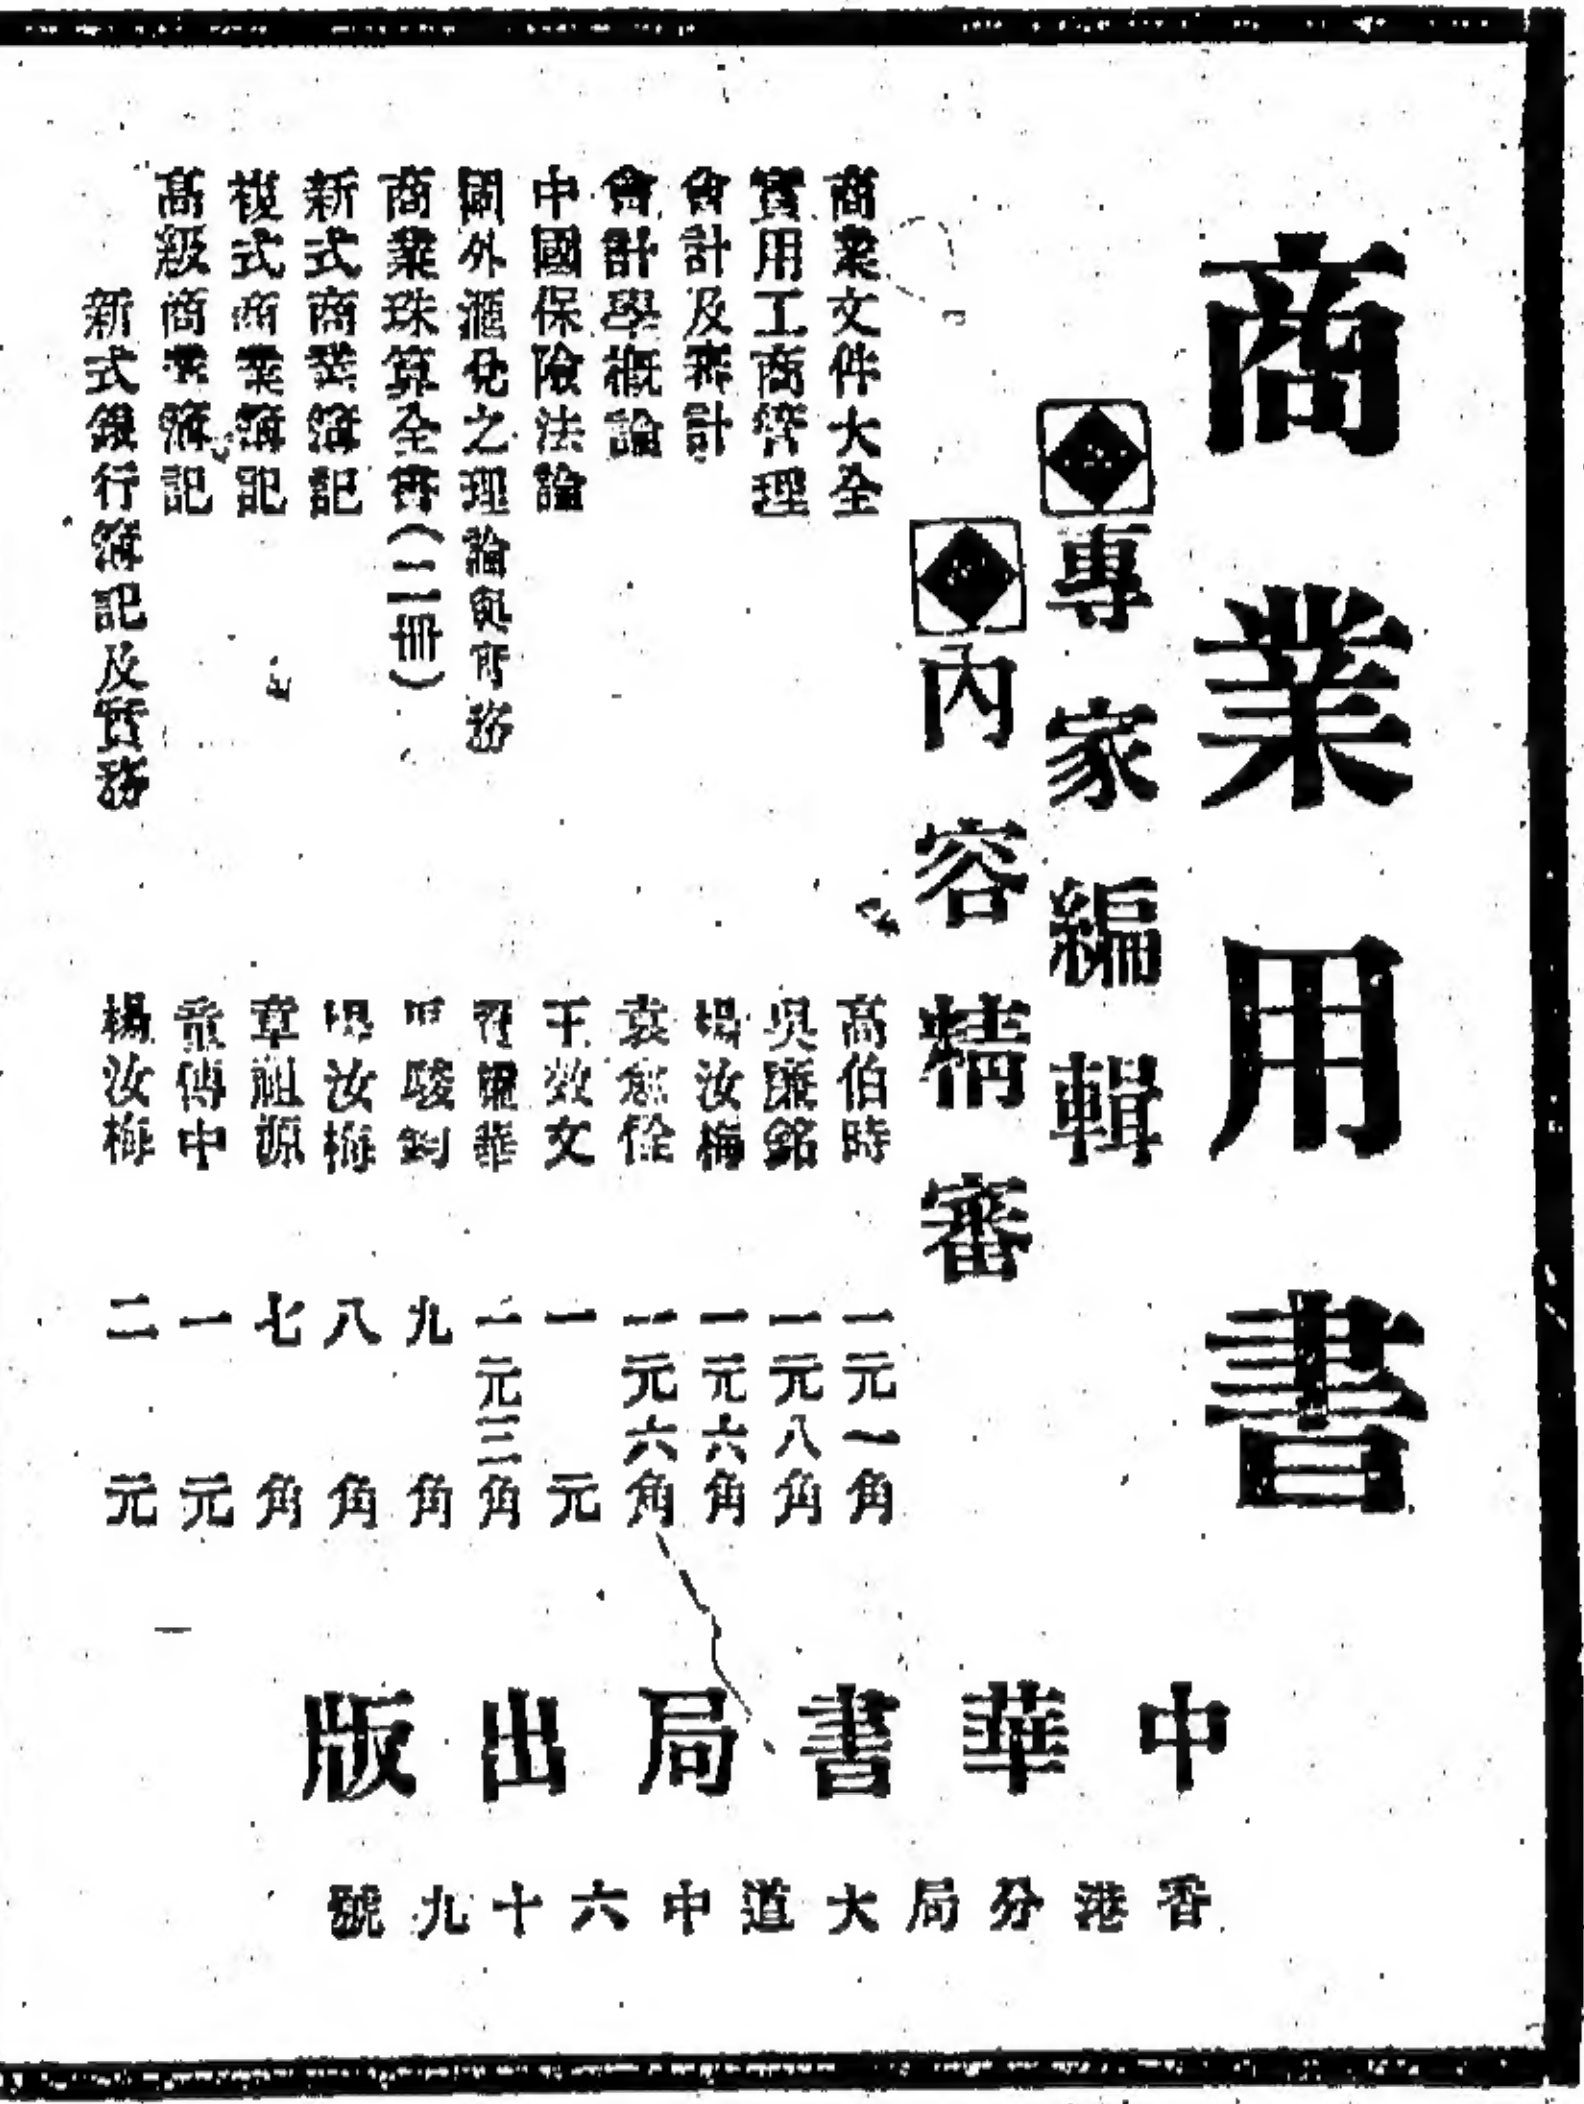 商業用書
專家編輯
內容精審
商業文件大全 高伯時 一元一角
實用工商管理 吳廉銘 一元八角
會計及審計 楊汝梅 一元六角
會計學概論 袁愈佺 一元六角
中國保險法論 王效文 一元
國外滙兌之理論與實務 華 一元三角
商業珠算全書（二冊） 駿鈞 九角
新式商業簿記 楊汝梅 八角
複式商業簿記 章祖源 七角
高級商業簿記 童傳中 一元
新式銀行簿記及實務 楊汝梅 二元
中華書局出版
香港分局大道中六十九號